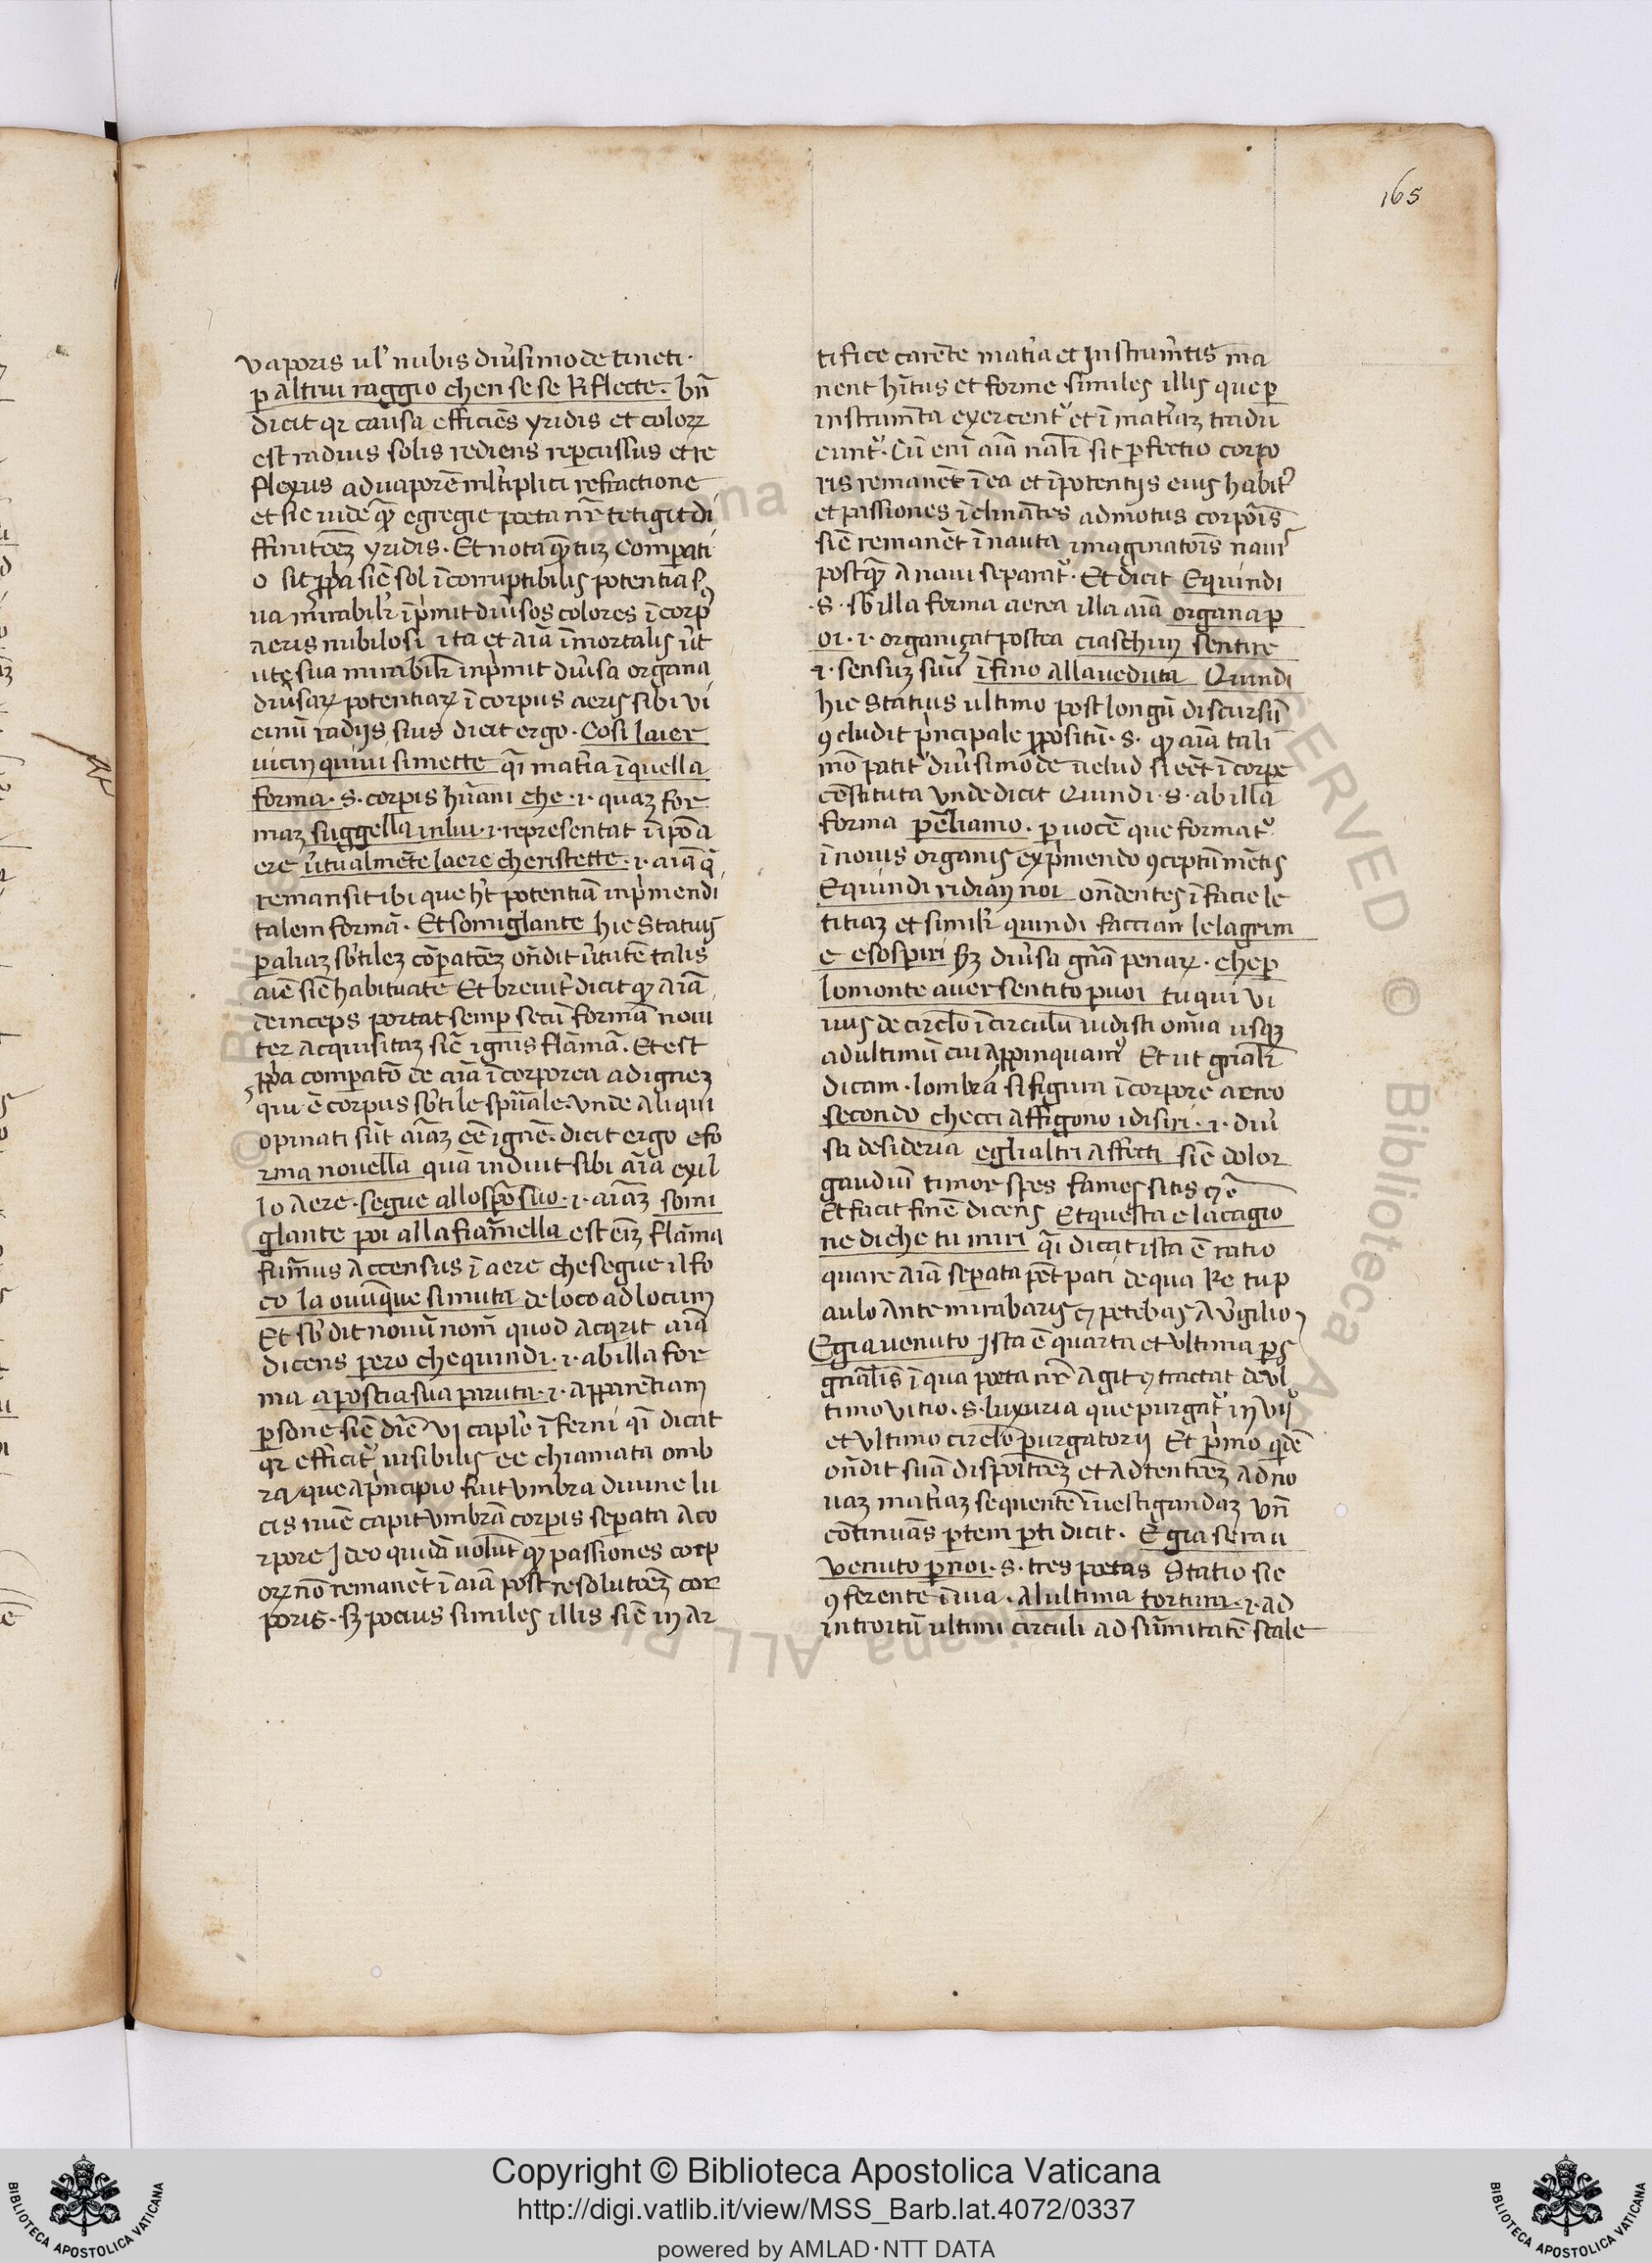 165
vaporis ul' nubis diu̾simode tincti·
ꝑ altrui raggio chen se se Riflecte. bn̄
dicit qꝛ causa efficiēs yridis et coloꝝ
est radius solis rediens reꝑcussus et re
flexus ad uaporē ml̾tiplici refractione
et sic uide qͫ egregie poeta nr̄ tetigit di
ffinitōeꝫ yridis. Et nota qͫ tuꝫ Comꝑati
o sit ꝓpa sic̄ sol īcorruptibilis potentia s
ua mirabilr̄ īp̾mit diu̾sos colores ī corꝑ
aeris nubilosi ita et aīa īmortalis u̾t
ute sua mirabilr̄ inp̾mit diu̾sa organa
diu̾saꝝ potentiaꝝ ī corpus aeris sibi vi
cinū radijs suis dicit ergo. Cosi laier
uicin quiui simette qī mat̾ia ī quella
forma. s. corꝑis hūani che .i. quaꝫ for
maꝫ suggella inlui .i. representat ī ip̄o a
ere u̾tualmēte laere che ristette .i. aīa q̄
remansit ibi que ht̄ potentiā inp̾mendi
talem formā. Et somiglante hic Statius
ꝑ aliaꝫ sb̾tileꝫ cōꝑatōeꝫ on̄dit u̾tutē talis
aīe sic̄ habituate Et breuit̾ dicit qͫ aīa
deinceps portat semꝑ secū formā noui
ter acquisitaꝫ sic̄ ignis flāmā. Et est
ꝓpa comꝑatō de aīa īcorporea ad igneꝫ
qui ē corpus sb̾tile spūale. Vnde aliqui
opinati sūt aīaꝫ eē ignē. dicit ergo efo
rma nouella quā induit sibi aīa ex il
lo aere. segue allosp̄o suo .i. aīaꝫ somi
glante poi alla fiāmella est eīꝫ flāma
fumus accensus ī aere che segue il fo
co la ouunque simuta de loco ad locum
Et sb̾dit nouū nom̄ quod acq̾rit aīa
dicens pero che quindi .i. ab illa for
ma a poscia sua paruta .i. apparētiam
ꝑsone sic̄ dr̄e VI caplo īferni qī dicat
qꝛ efficit̾ uisibilis ee chiamata omb
ra que a p̾ncipio fuit vmbra diuine lu
cis nūc capit vmbrā corꝑis seꝑata a co
rpore Ideo quidā uolūt qͫ passiones corꝑ
oꝝ nō remanēt ī aīa post resolutōeꝫ cor
poris. sꝫ pocius similes illis sic̄ in ar
tifice carēte mat̾ia et Instrum̄tis ma
nent hītus et forme similes illis que ꝑ
instrum̄ta exercent̾ et ī mat̾iaꝫ tradu
cunt̾. Cū enī aīa nālr̄ sit ꝑfectio corpo
ris remanēt ī ea et ī potentijs eius habit̾
et passiones īclināntes ad motus corꝑis
sic̄ remanēt ī nauta imaginatoīs nauis
postqͫ a naui separat̾. Et dicit Equindi
.s. sb illa forma aerea illa aīa organa ꝑ
oi .i. organiꝫat postea ciaschun sentire
.i. sensuꝫ suū īfino alla ueduta Quindi
hic Statius ultimo post longū discursū
ꝯcludit p̾ncipale ꝓpositū. s. qͫ aīa tali
mō patit̾ diu̾simode uelud si eēt ī corꝑe
cōstituta vnde dicit Quindi .s. ab illa
forma ꝑliamo. ꝑ uocē que format̾
ī nouis organis exp̾mendo ꝯceptū mētis
Equindi ridian noi on̄dentes ī facie le
titiaꝫ et similr̄ quindi faccian le lagrim
e esospiri sꝫ diu̾sa gn̄a penaꝝ. che ꝑ
lo monte auer sentito puoi tu qui vi
uus de circlo ī circulū uidisti omīa usqꝫ
ad ultimū cui apꝓpinquam̾ Et ut gn̄alr̄
dicam. lombra si figura ī corpore aereo
secondo checci affigono idisiri .i. diu̾
sa desideria eglialtri affecti sic̄ dolor
gaudiū timor spes fames sitis ⁊c̄
Et facit finē dicens Et questa e la cagio
ne di che tu miri qī dicat ista ē ratio
quare aīa seꝑata pēt pati de qua Re tu p
aulo ante mirabaris ⁊ petebas a Virgilio
Egia uenuto Ista ē quarta et vltima pars
gn̄alis ī qua poeta nr̄ agit ⁊ tractat de vl
timo vitio .s. luxuria que purgat̾ in vij
et vltimo circlo purgatorij Et p̾mo qdē
on̄dit suā dispoītōeꝫ et adtentōeꝫ ad no
uaꝫ mat̾iaꝫ sequentē īuestigandaꝫ vn̄
continuās ꝑtem ꝑti dicit. E gia serau
venuto ꝑ noi .s. tres poetas Statio sic
ꝯferente ī uia. al ultima tortura .i. ad
introitū ultimi circuli ad sūmitatē scale
© Biblioteca Apostolica Vaticana ALL RIGHTS RESERVED
Copyright © Biblioteca Apostolica Vaticana
http://digi.vatlib.it/view/MSS_Barb.lat.4072/0337
powered by AMLAD·NTT DATA
BIBLIOTECA APOSTOLICA VATICANA
BIBLIOTECA APOSTOLICA VATICANA